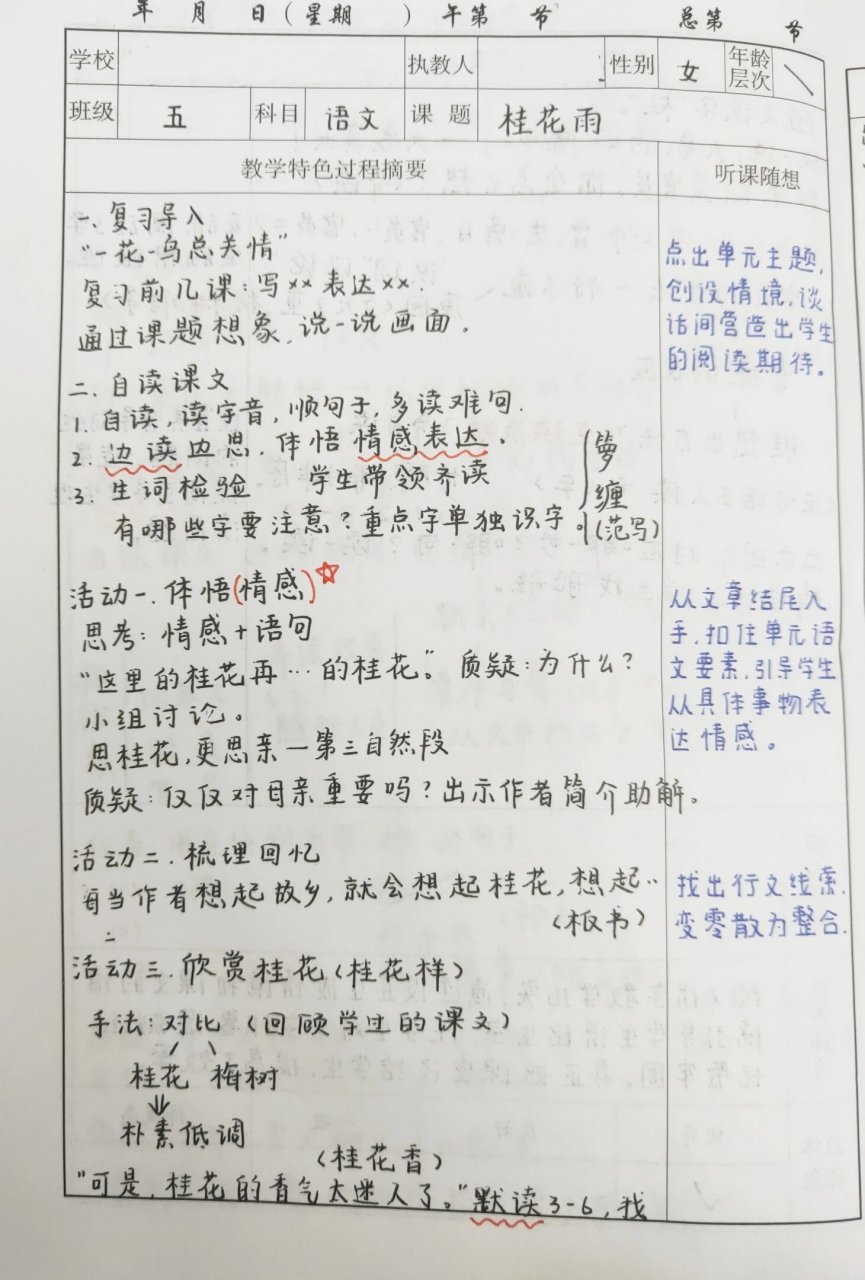 年 月 日(星期 ) 午第 节 总第 节
学校 执教人 性别 女 年龄层次 \
班级 五 科目 语文 课题 桂花雨
教学特色过程摘要 听课随想
一、复习导入
"一花一鸟总关情"
复习前几课:写××表达××.
通过课题想象,说一说画面.
点出单元主题,
创设情境,谈
话间营造出学生
的阅读期待。
二.自读课文
1.自读,读字音,顺句子,多读难句.
2.边读边思.体悟情感表达.
3.生词检验 学生带领齐读
有哪些字要注意?重点字单独识字。
箩
缠
(范写)
活动一.体悟(情感)☆
思考:情感+语句
"这里的桂花再…的桂花。"质疑:为什么?
小组讨论。
思桂花,更思亲—第三自然段
质疑:仅仅对母亲重要吗?出示作者简介助解。
从文章结尾入
手,扣住单元语
文要素,引导学生
从具体事物表
达情感。
活动二.梳理回忆
每当作者想起故乡,就会想起桂花,想起..
(板书)
找出行文线索.
变零散为整合.
活动三.欣赏桂花(桂花样)
手法:对比(回顾学过的课文)
桂花 梅树
朴素低调
(桂花香)
"可是,桂花的香气太迷人了。"默读3-6,找